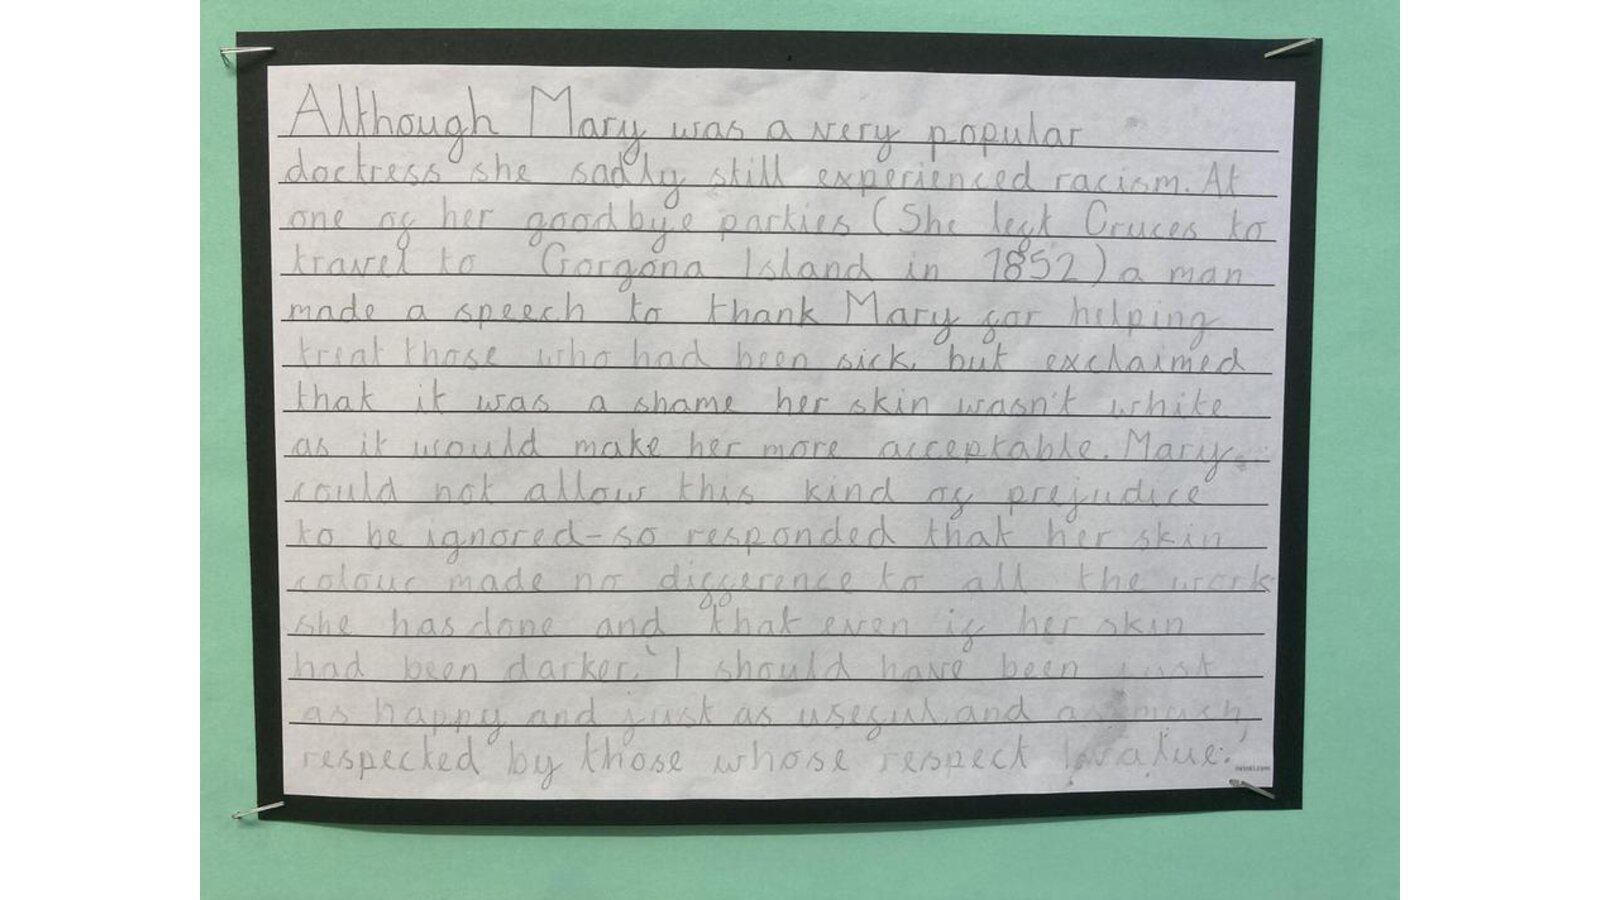 Although Mary was a very popular
doctress she sadly still experienced racism. At
one of her goodbye parties (She left Cruces to
travel to Gorgona Island in 1852) a man
made a speech to thank Mary for helping
treat those who had been sick, but exclaimed
that it was a shame her skin wasn't white
as it would make her more acceptable. Mary
could not allow this kind of prejudice
to be ignored-so responded that her skin
colour made no difference to all the work
she has done and that even if her skin
had been darker, 'I should have been just
as happy and just as useful, and as much
respected by those whose respect I value.'
twinkl.com